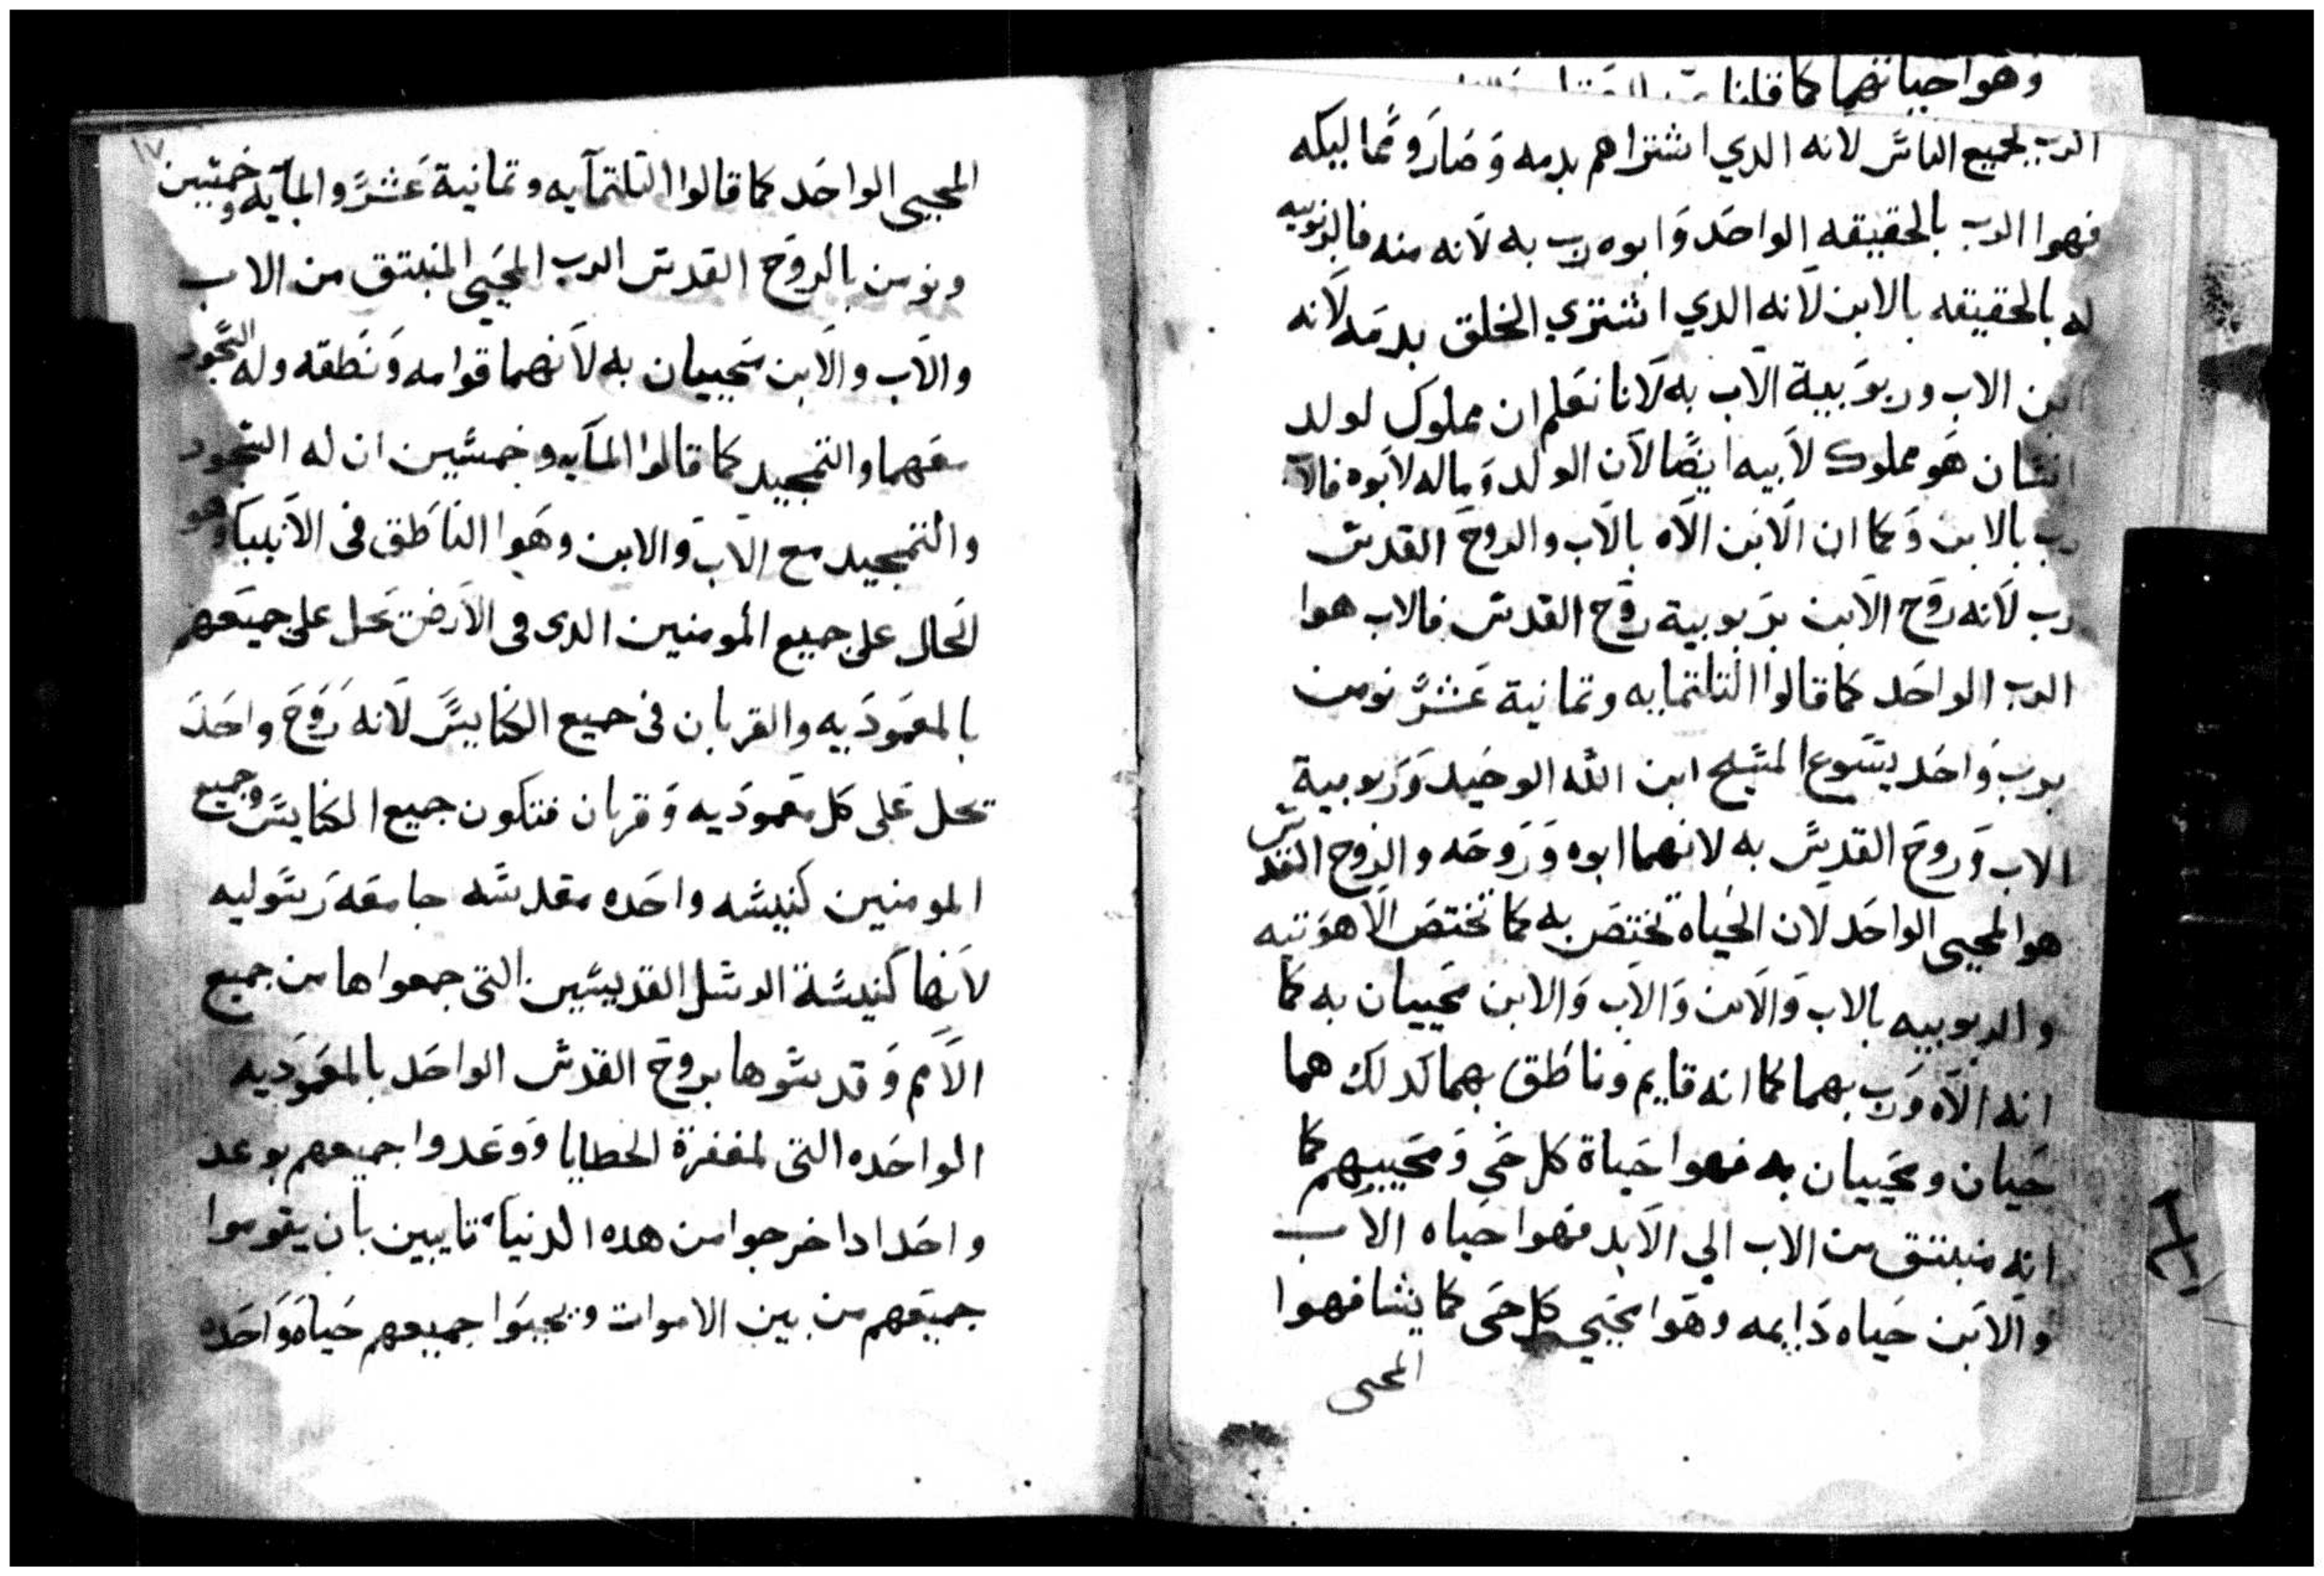 وهوا حياتهما كما قلنا
الرب لجميع الناس لانه الدي اشتراهم بدمه وصارو مماليكه
فهوا الرب بالحقيقه الواحد وابوه رب به لانه منه فالربوبيه
له بالحقيقه بالابن لانه الدي اشتري الخلق بدمه لانه
ابن الاب وربوبية الاب به لانا نعلم ان مملوك لولد
انسان هو مملوك لابيه ايضا لان الولد وماله لابوه فالاب
رب بالابن وكما ان الابن الاه بالاب والروح القدس
رب لانه روح الابن بربوبية روح القدس فالاب هوا
الرب الواحد كما قالوا التلتمايه وتمانية عشر نومن
برب واحد يسوع المسيح ابن الله الوحيد وربوبية
الاب وروح القدس به لانهما ابوه وروحه والروح القدس
هوا المحيي الواحد لان الحياة تختص به كما تختص الاهوتيه
والربوبيه بالاب والابن والاب والابن محييان به كما
انه الاه ورب بهما كما انه قايم وناطق بهما كدلك هما
حيان ومحييان به فهوا حياة كل حي ومحييهم كما
انه منبتق من الاب الي الابد فهوا حياه الاب
والابن حياه دايمه وهوا يحيي كل حي كما يشا فهوا
المحيى
١٧
المحيي الواحد كما قالوا التلتمآيه وتمانية عشر والمآيه وخمسين
ونومن بالروح القدس الرب المحيي المنبتق من الاب
والاب والابن محييان به لانهما قوامه ونطقه وله السجود
معهما والتمجيد كما قالوا المآيه وخمسين ان له السجود
والتمجيد مع الاب والابن وهوا الناطق في الانبيا وهو
الحال على جميع المومنين الدى في الارض تحل على جميعهم
بالمعموديه والقربان في جميع الكنايس لانه روح واحد
تحل على كل معموديه وقربان فتكون جميع الكنايس وجميع
المومنين كنيسه واحده مقدسه جامعة رسوليه
لانها كنيسة الرسل القديسين التي جمعواها من جميع
الامم وقدسوها بروح القدس الواحد بالمعموديه
الواحده التي لمغفرة الخطايا ووعدوا جميعهم بوعد
واحد ادا خرجوا من هده الدنيا تايبين بان يقوموا
جميعهم من بين الاموات ويحيوا جميعهم حياة واحده